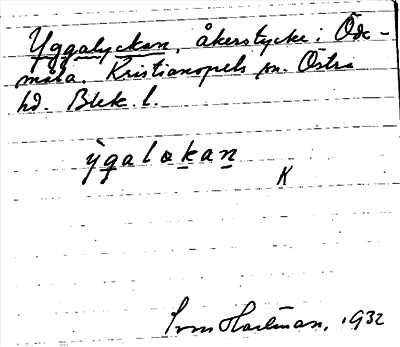 Yggalyckan, åkerstycke: Öde-
måla. Kristianopels sn. Östra
hd. Blek. l.
ỳgalokan
K
Sven Hartman, 1932